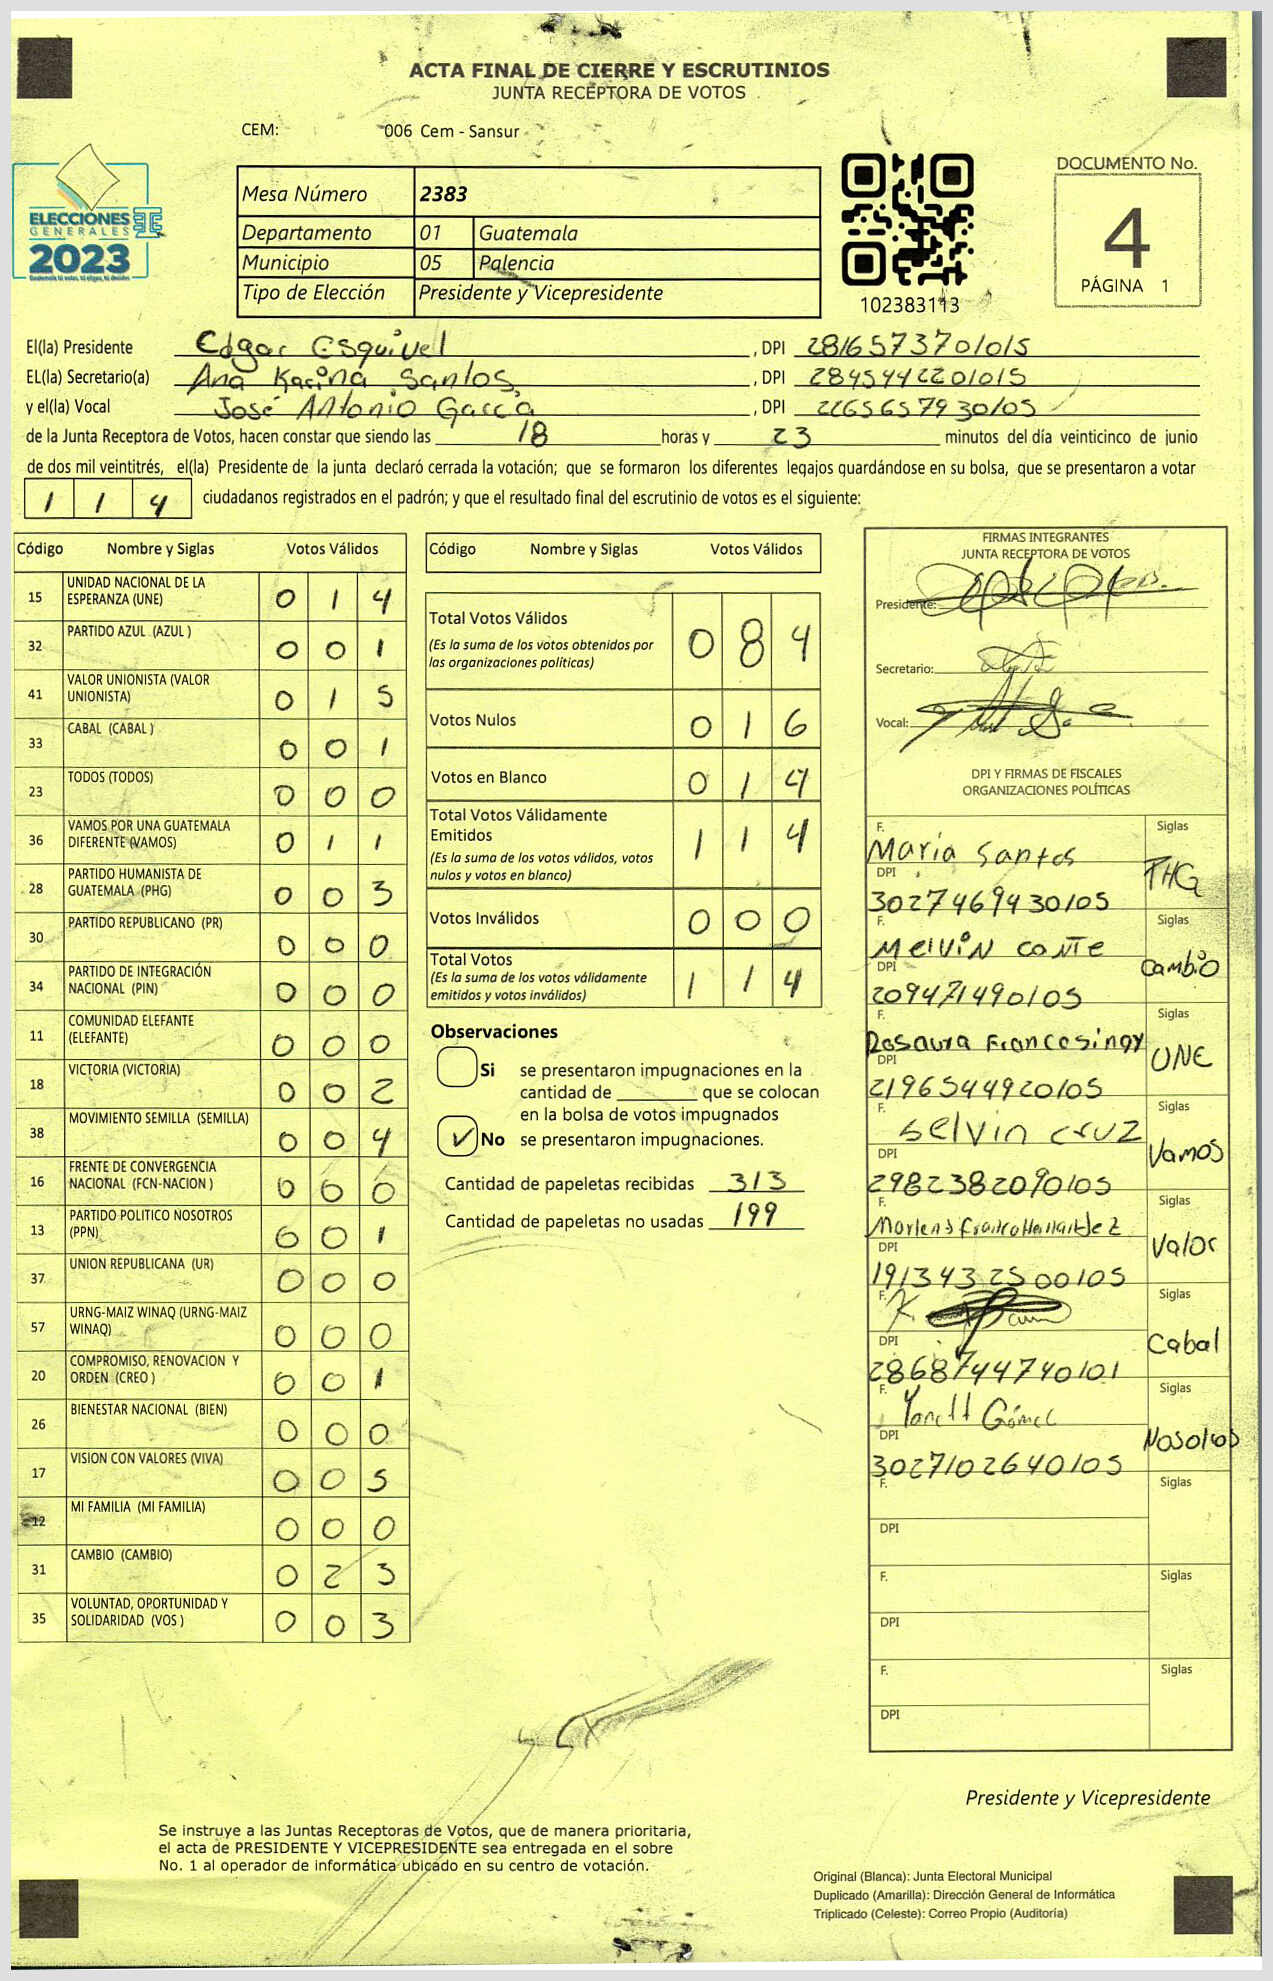 ACTA FINAL DE CIERRE Y ESCRUTINIOS
JUNTA RECEPTORA DE VOTOS
CEM: 006 Cem - Sansur
ELECCIONES
GENERALES
2023
Mesa Número 2383
Departamento 01 Guatemala
Municipio 05 Palencia
Tipo de Elección Presidente y Vicepresidente
102383113
DOCUMENTO No.
4
PÁGINA 1
El(la) Presidente Edgar Esquivel , DPI 2816573701015
EL(la) Secretario(a) Ana Karina Santos , DPI 2845442201015
y el(la) Vocal José Antonio García , DPI 2265657930105
de la Junta Receptora de Votos, hacen constar que siendo las 18 horas y 23 minutos del día veinticinco de junio
de dos mil veintitrés, el(la) Presidente de la junta declaró cerrada la votación; que se formaron los diferentes legajos guardándose en su bolsa, que se presentaron a votar
1 1 4 ciudadanos registrados en el padrón; y que el resultado final del escrutinio de votos es el siguiente:
Código Nombre y Siglas Votos Válidos
15 UNIDAD NACIONAL DE LA ESPERANZA (UNE) 0 1 4
32 PARTIDO AZUL (AZUL ) 0 0 1
41 VALOR UNIONISTA (VALOR UNIONISTA) 0 1 5
33 CABAL (CABAL ) 0 0 1
23 TODOS (TODOS) 0 0 0
36 VAMOS POR UNA GUATEMALA DIFERENTE (VAMOS) 0 1 1
28 PARTIDO HUMANISTA DE GUATEMALA (PHG) 0 0 3
30 PARTIDO REPUBLICANO (PR) 0 0 0
34 PARTIDO DE INTEGRACIÓN NACIONAL (PIN) 0 0 0
11 COMUNIDAD ELEFANTE (ELEFANTE) 0 0 0
18 VICTORIA (VICTORIA) 0 0 2
38 MOVIMIENTO SEMILLA (SEMILLA) 0 0 4
16 FRENTE DE CONVERGENCIA NACIONAL (FCN-NACION ) 0 0 0
13 PARTIDO POLITICO NOSOTROS (PPN) 0 0 1
37 UNION REPUBLICANA (UR) 0 0 0
57 URNG-MAIZ WINAQ (URNG-MAIZ WINAQ) 0 0 0
20 COMPROMISO, RENOVACION Y ORDEN (CREO ) 0 0 1
26 BIENESTAR NACIONAL (BIEN) 0 0 0
17 VISION CON VALORES (VIVA) 0 0 5
12 MI FAMILIA (MI FAMILIA) 0 0 0
31 CAMBIO (CAMBIO) 0 2 3
35 VOLUNTAD, OPORTUNIDAD Y SOLIDARIDAD (VOS ) 0 0 3
Código Nombre y Siglas Votos Válidos
Total Votos Válidos 0 8 4
(Es la suma de los votos obtenidos por
las organizaciones políticas)
Votos Nulos 0 1 6
Votos en Blanco 0 1 4
Total Votos Válidamente
Emitidos 1 1 4
(Es la suma de los votos válidos, votos
nulos y votos en blanco)
Votos Inválidos 0 0 0
Total Votos 1 1 4
(Es la suma de los votos válidamente
emitidos y votos inválidos)
Observaciones
Si se presentaron impugnaciones en la
cantidad de ________ que se colocan
en la bolsa de votos impugnados
✓ No se presentaron impugnaciones.
Cantidad de papeletas recibidas 313
Cantidad de papeletas no usadas 199
FIRMAS INTEGRANTES
JUNTA RECEPTORA DE VOTOS
Presidente:
Secretario:
Vocal:
DPI Y FIRMAS DE FISCALES
ORGANIZACIONES POLÍTICAS
F. María Santos Siglas PHG
DPI 3027469430105
F. Melvin Conte Siglas Cambio
DPI 209471490105
F. Rosaura Siglas UNE
DPI 2196544920105
F. Selvin Cruz Siglas Vamos
DPI 2982382090105
F. Siglas Valor
DPI 1913432500105
F. Siglas Cabal
DPI 2868744740101
F. Yanett Gómez Siglas Nosotros
DPI 3027102640105
F. Siglas
DPI
F. Siglas
DPI
F. Siglas
DPI
Presidente y Vicepresidente
Se instruye a las Juntas Receptoras de Votos, que de manera prioritaria,
el acta de PRESIDENTE Y VICEPRESIDENTE sea entregada en el sobre
No. 1 al operador de informática ubicado en su centro de votación.
Original (Blanca): Junta Electoral Municipal
Duplicado (Amarilla): Dirección General de Informática
Triplicado (Celeste): Correo Propio (Auditoría)